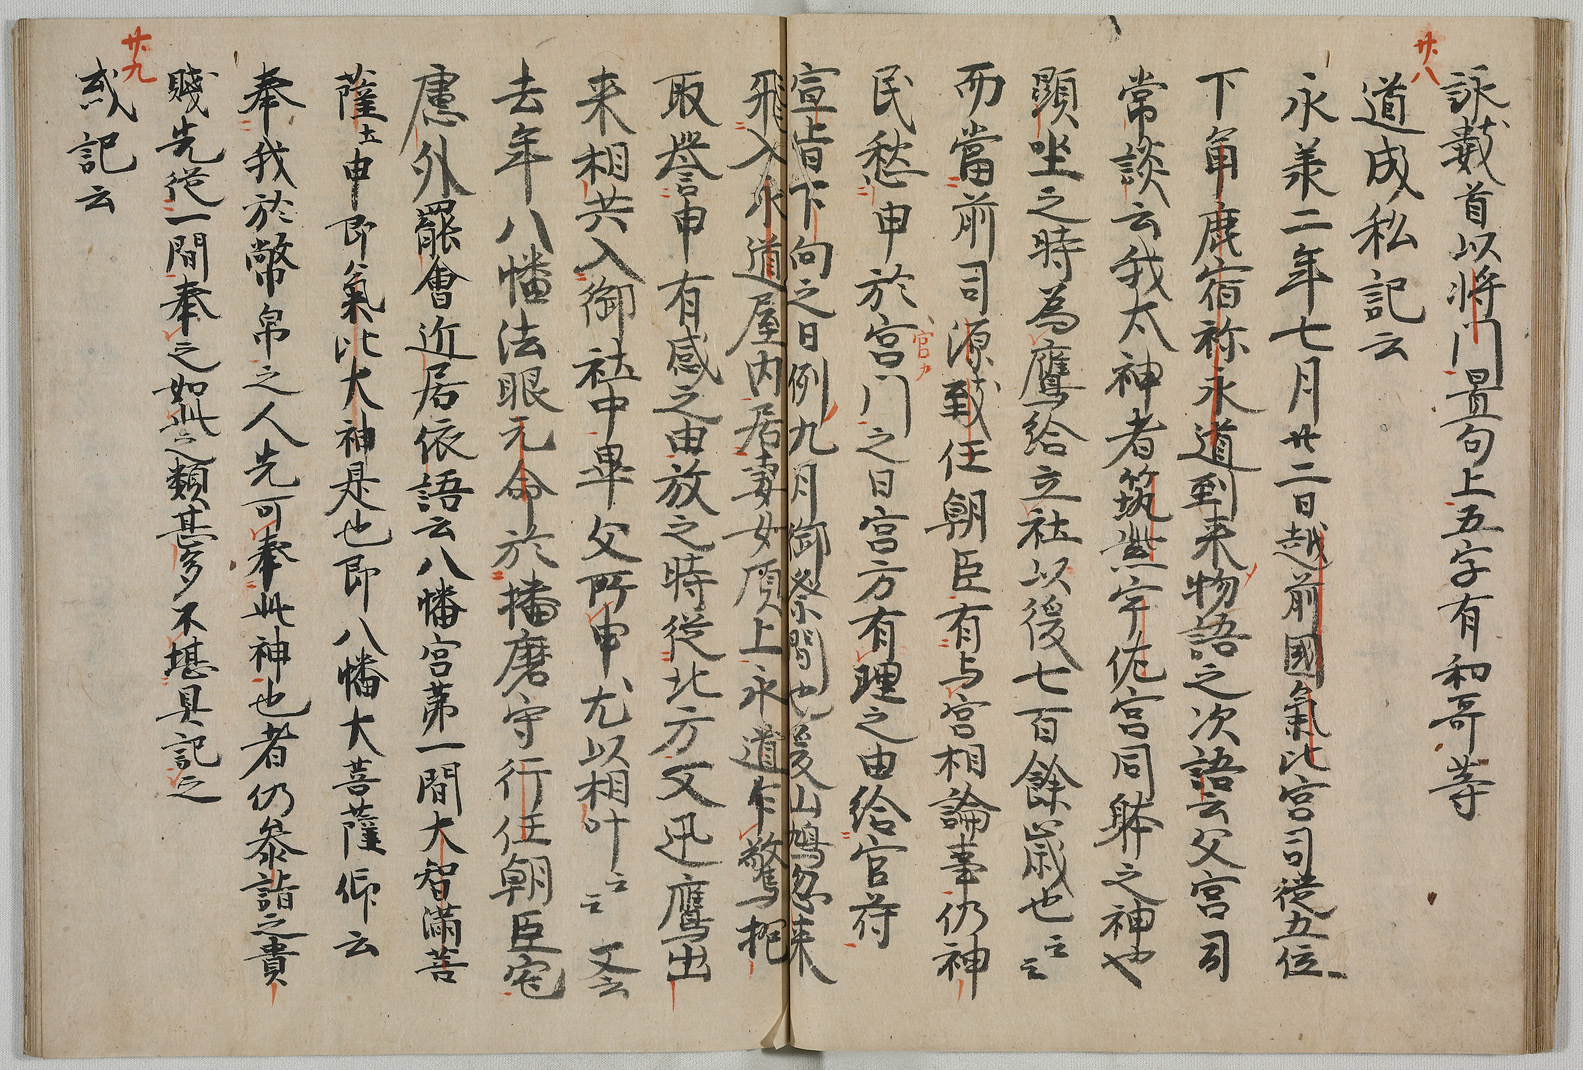 詠戴首以将門景句上五字有和哥等
廿八
道成私記云
永義二年七月廿二日越前國氣比宮司従五位
下角鹿宿祢永道到来物語之次語云父宮司
常談云我太神者筑紫宇佐宮同躰之神也
顕坐之時為鷹給立社以後七百餘歳也云云
而當前司源致任朝臣有与宮相論事仍神
民愁申於宮門之日宮方有理之由給官苻
官カ
宣旨下向之日例九月御祭間也爰山鳩忽来
飛入永道屋内居妻女頂上永道乍驚抱
取誉申有感之由放之時従北方又迅鷹出
来相共入御社中畢父所申尤以相叶云云 又云
去年八幡法眼元命於播磨守行任朝臣宅
慮外罷會近居依語云八幡宮第一間大智満菩
薩士申即氣比大神是也即八幡大菩薩仰云
奉我於幣帛之人先可奉此神也者仍参詣之貴
賤先従一間奉之如此之類甚多不堪具記之
廿九
或記云